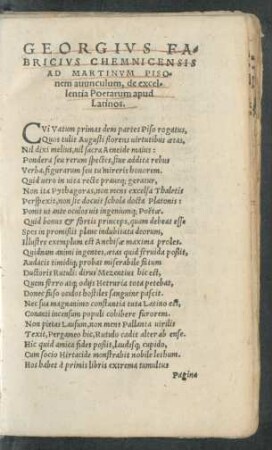 GEORGIVS FA-
BRICIVS CHEMNICENSIS
AD MARTINVM PISO-
nem auunculum, de excel-
lentia Poetarum apud
Latinos.
CVi Vatum primas dem partes Piso rogatus,
Quos tulit Augusti florens uirtutibus ætas,
Nil dixi melius, nil sacra Aeneide maius:
Pondera seu rerum spectes, siue addita rebus
Verba, figurarum seu tu mireris honorem.
Quid uero in uita recte prauéq; geratur,
Non ita Pythagoras, non uox excelsa Thaletis
Perspexit, non sic docuit schola docta Platonis:
Ponit ut ante oculos ingeniumq; Poëtæ.
Quid bonus & fortis princeps, quam debeat esse
Spes in promissis plane indubitata deorum,
Illustre exemplum est Anchisæ maxima proles.
Quidnam animi ingentes, ætas quid feruida possit,
Audacis timidiq; probat miserabile fatum
Ductoris Rutuli: dirus Mezentius hic est,
Quem ferro atq; odijs Hetruria tota petebat,
Donec fuso undos hostiles sanguine pascit.
Nec sua magnanimo constantia tota Latino est,
Conanti incensum populi cohibere furorem.
Non pietas Lausum, non mens Pallanta uirilis
Texit, Pergameo hic, Rutulo cadit alter ab ense.
Hic quid amica fides possit, laudisq; cupido,
Cum socio Hirtacides monstrabit nobile lethum.
Hos habet è primis libris extrema tumultus
Pagina